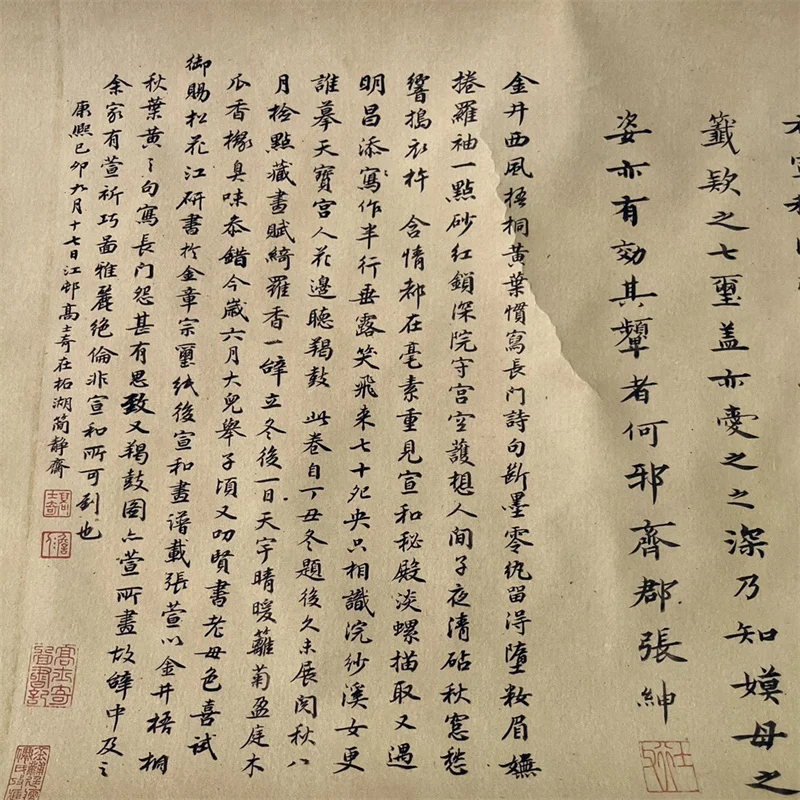 籤欵之七璽盖亦憂之之深乃知嫫母之
姿亦有效其顰者何邪齊郡張紳
金井西風梧桐黃葉慣寫長門詩句斷墨零紈留得墮粧眉嫵
捲羅袖一點砂紅鎖深院守宮空護想人間子夜清砧秋窓愁
響搗衣杵 含情都在毫素重見宣和秘殿淡螺描取又遇
明昌添寫作半行垂露笑飛来七十央只相識浣紗溪女更
誰摹天寶宮人花邊聽羯鼓 此卷自丁丑冬題後久未展閱秋八
月檢點藏書賦綺羅香一辭立冬後一日天宇晴暖蘺菊盈庭木
瓜香橼臭味叅錯今歲六月大兒舉子頃又叨賢書老母色喜試
御賜松花江研書於金章宗璽紙後宣和畫譜載張萱以金井梧桐
秋葉黃之句寫長門怨甚有思致又羯鼓圖亦萱所畫故辭中及之
余家有萱祈巧圖雅麗絕倫非宣和所可到也
康熙己卯九月十七日江邨高士奇在柘湖簡静齋